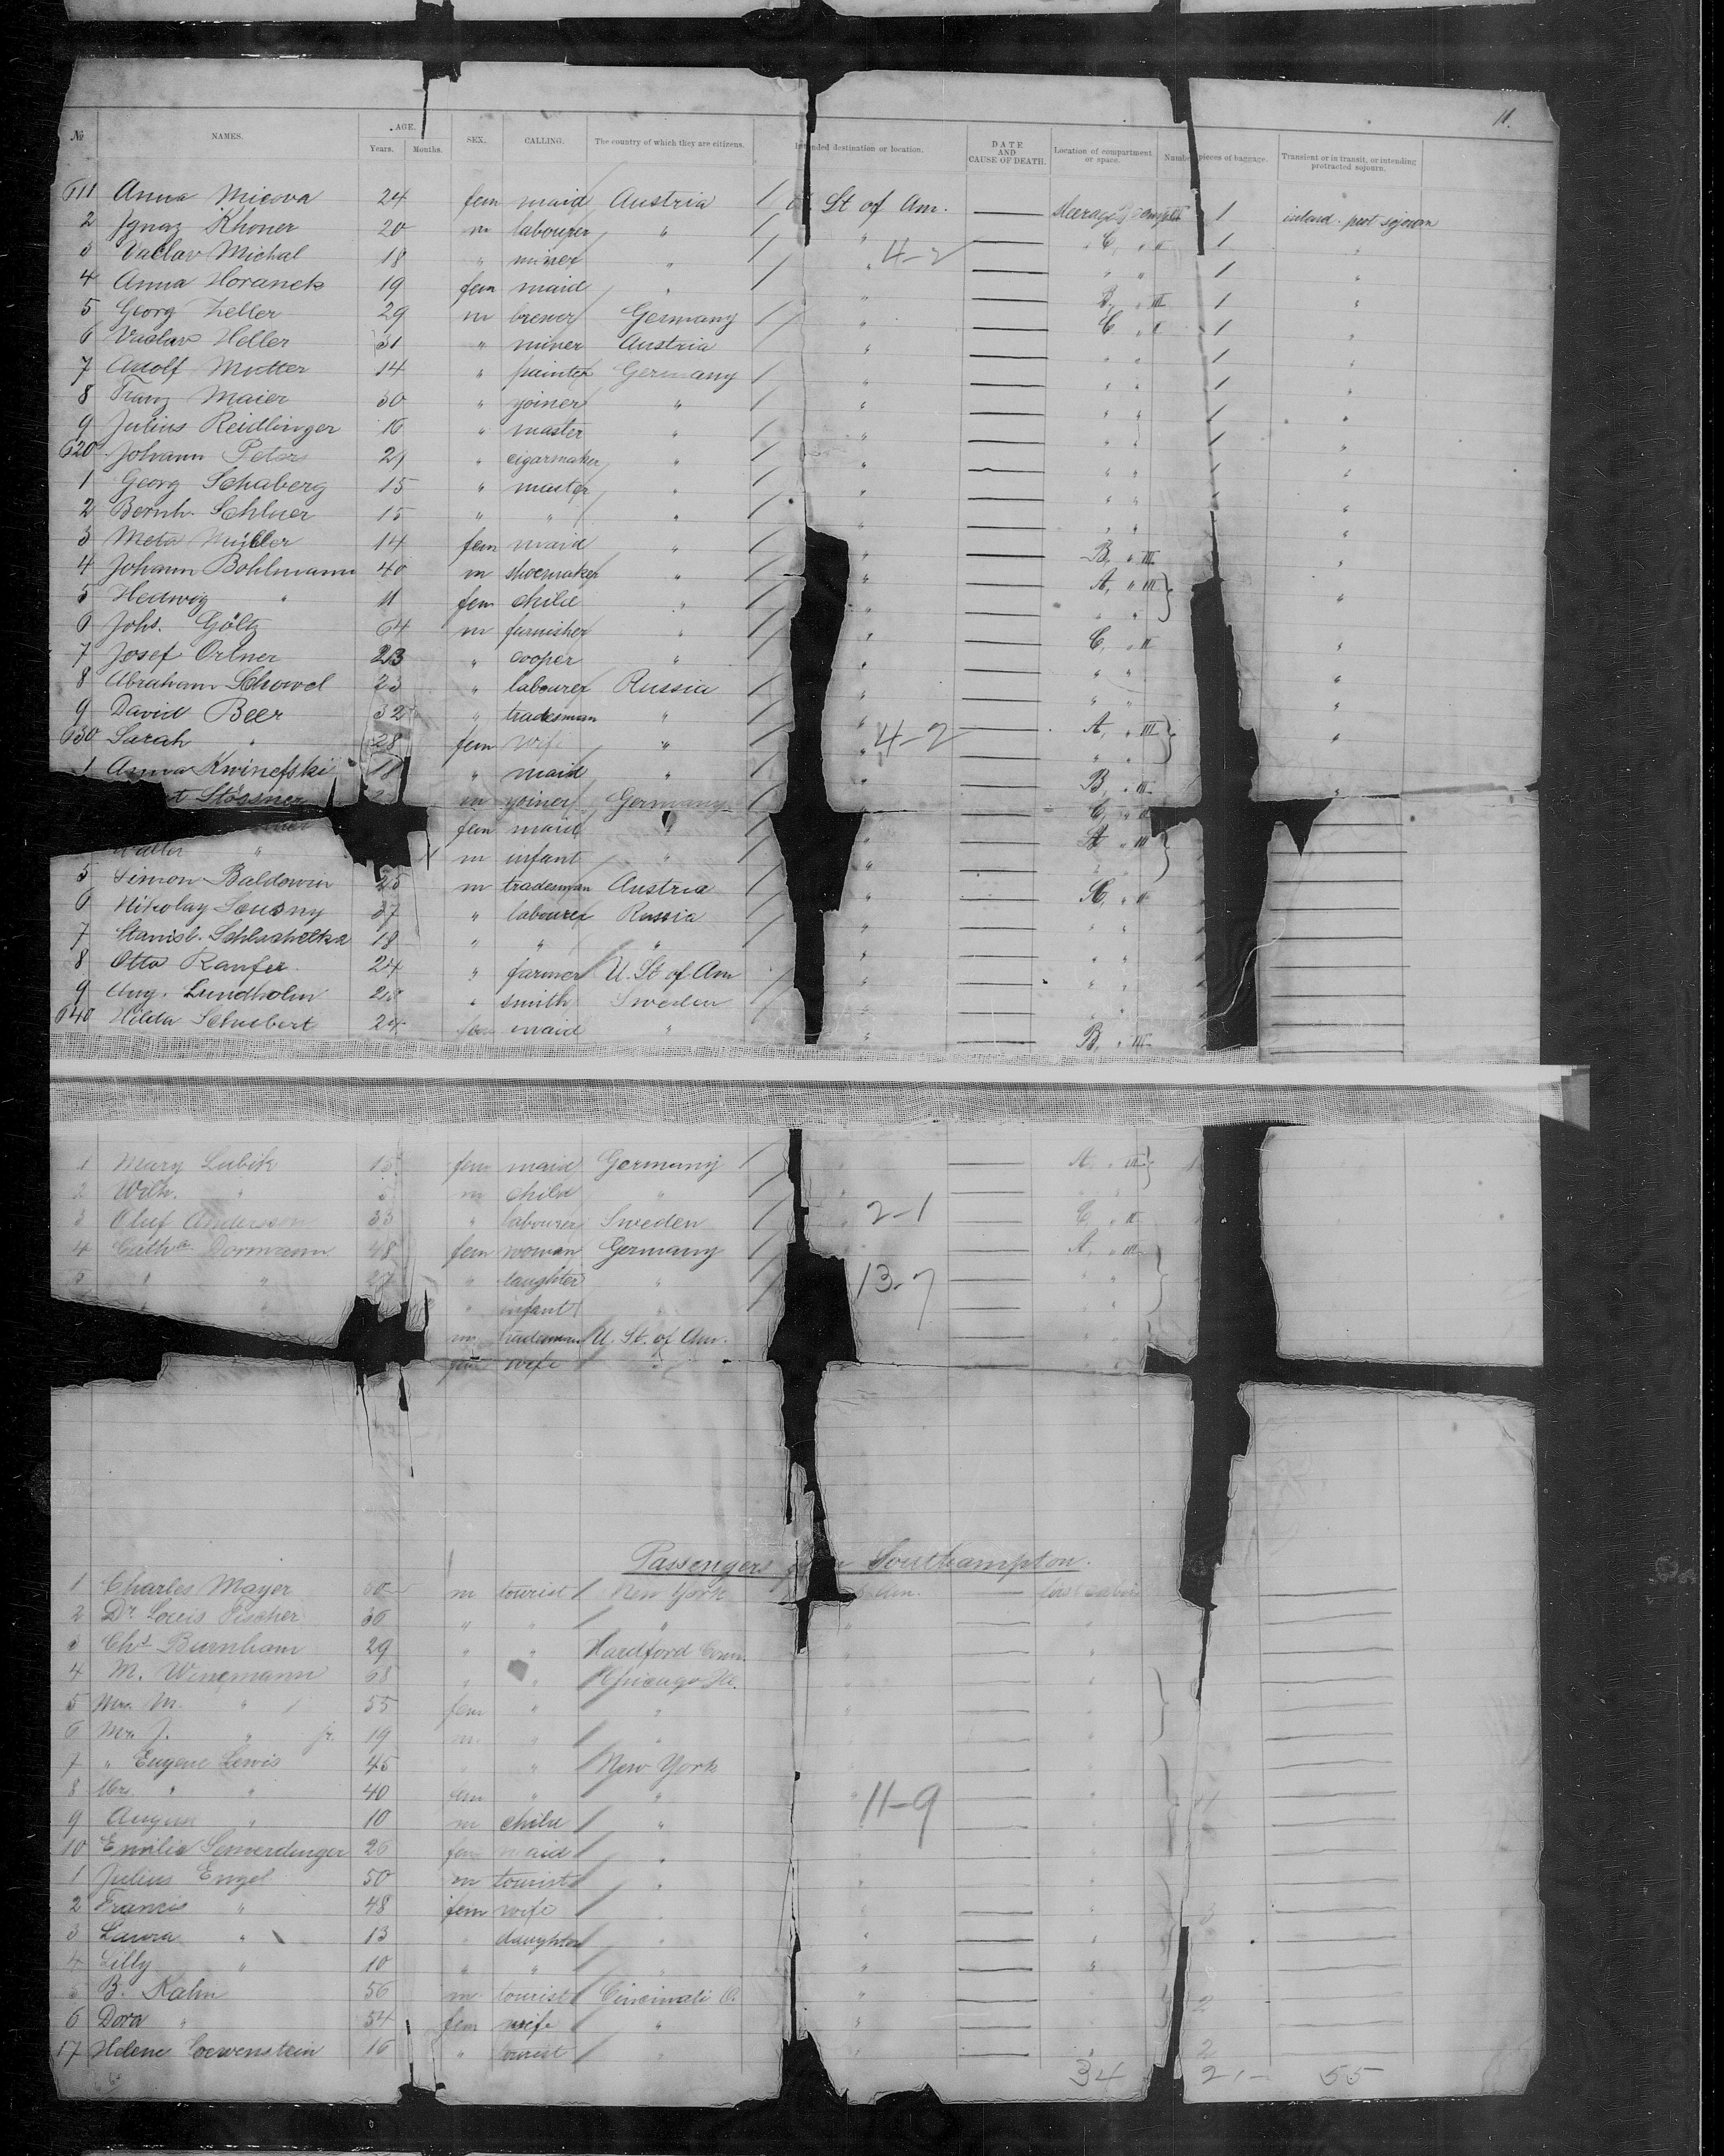 11.
№ NAMES. AGE. Years. Months. SEX. CALLING. The country of which they are citizens. Intended destination or location. DATE AND CAUSE OF DEATH. Location of compartment or space. Number pieces of baggage. Transient or in transit, or intending protracted sojourn.
611 Anna Micova 24 fem maid Austria St of Am. steerage 1 intend. prot sojourn
2 Ignaz Khoner 20 m labourer " " C, " II 1 "
3 Vaclav Michal 18 " miner " " 4-2 " " 1 "
4 Anna Horanek 19 fem maid " " B, " III 1 "
5 Georg Zeller 29 m brewer Germany " C, " II 1 "
6 Vaclav Heller 31 " miner Austria " " " 1 "
7 Adolf Mutter 14 " painter Germany " " " 1 "
8 Franz Maier 30 " joiner " " " " 1 "
9 Julius Reidlinger 16 " master " " " " 1 "
620 Johann Peters 29 " cigarmaker " " " " 1 "
1 Georg Schaberg 15 " master " " " " 1 "
2 Bernh. 15 " " " " " " "
3 Meta Müller 14 fem maid " " B, " III "
4 Johann Bohlmann 40 m shoemaker " " A, " III
5 Hedwig " 11 fem child " " " " "
6 Johs. Göltz 64 m furnisher " " C, " II "
7 Josef Ortner 23 " cooper " " " " "
8 Abraham Schowel 23 " labourer Russia " " " "
9 David Beer 32 " tradesman " " A, " III
630 Sarah " 28 fem wife " " 4-2 " " "
1 Anna Kwinefski 18 " maid " " B, " III "
t Stössner m joiner Germany " C, " II
fem maid " " A " III
Walter " m infant " " " "
5 Simon Baldowin 25 m tradesman Austria " A, " II
6 Nikolay 37 " labourer Russia " " "
7 Stanisl. 18 " " " " " "
8 Otto Ranfer 24 " farmer U. St of Am " " "
9 Aug. Lundholm 25 " smith Sweden " " "
640 Hilda Schubert 24 fem maid " " B, " III
1 Mary Lubik fem maid Germany " A, " III
2 Wilh. " m child " " " "
3 Oluf Andersson 33 " labourer Sweden " 2-1 C, " II
4 Cath^a Dormann 48 fem woman Germany A, " III
5 " " " daughter " 13-7 " "
" " " infant " " "
m tradesman U. St. of Am. " "
fem wife "
Passengers from Southampton.
1 Charles Mayer m tourist New York Am.
2 Dr Louis Fischer 30 " " " "
3 Chs Burnham 29 " " Hardford Conn. " "
4 M. 68 " " Chicago Ill. " "
5 Mrs. M. " 55 fem " " " "
6 Mr. J. " jr. 19 m " " "
7 " Eugene Lewis 45 " " New York "
8 Mrs. " " 40 fem " " " 11-9 "
9 August " 10 m child " "
10 Emilie 26 fem maid " "
1 Julius Engel 50 m tourist " "
2 Francis " 48 fem wife " " 3
3 Laura " 13 " daughter " " "
4 Lilly " 10 " " " " "
5 B. Kahn 56 m tourist Cincinnati O. " " 2
6 Dora " 54 fem wife " " "
17 Helene Loewenstein 16 " tourist " " " 2
34 21- 55